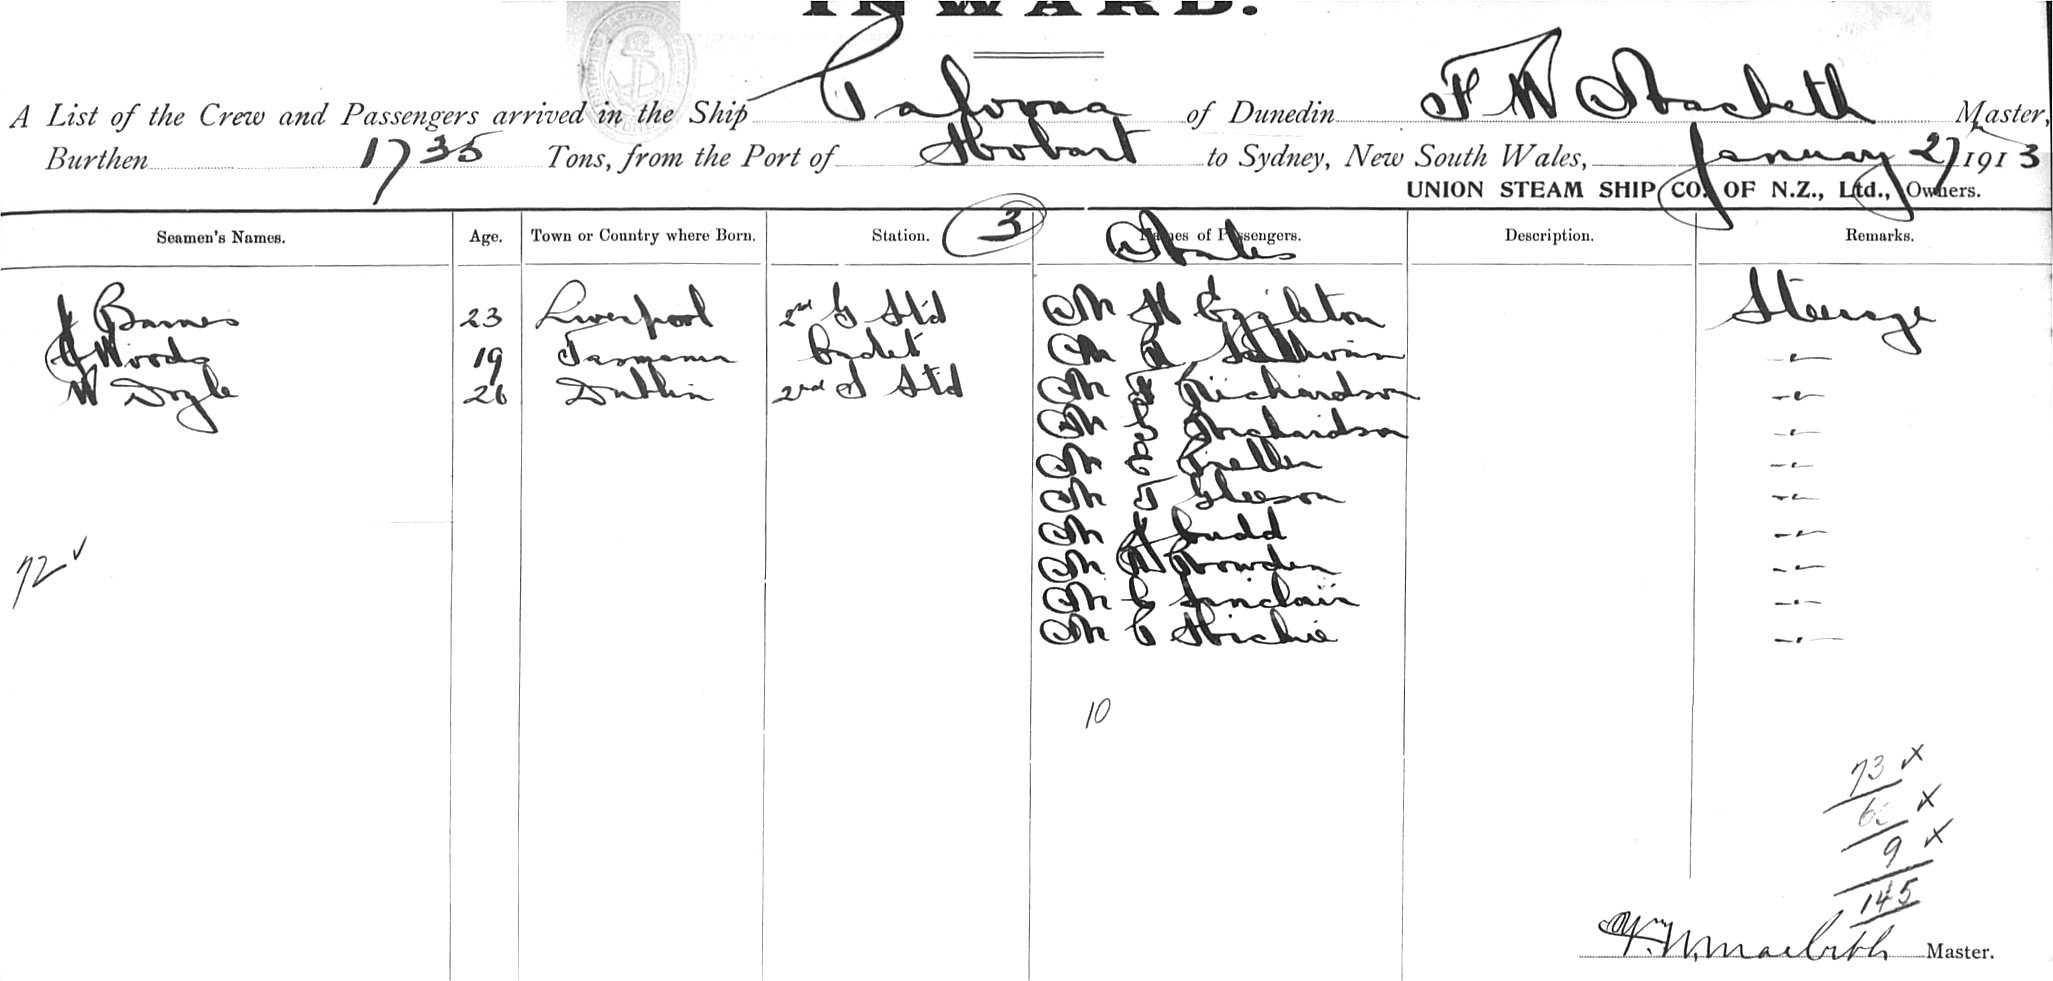 INWARD.
A List of the Crew and Passengers arrived in the Ship Paloona of Dunedin F W Macbeth Master,
Burthen 1735 Tons, from the Port of Hobart to Sydney, New South Wales, January 27 1913
UNION STEAM SHIP CO. OF N.Z., Ltd., Owners.
3
Males
Seamen's Names. Age. Town or Country where Born. Station. Names of Passengers. Description. Remarks.
J Barnes 23 Liverpool 2nd G Std Mr H Eggleton Steerage
J Woods 19 Tasmania Cadet Mr A Sullivan -"-
W Doyle 26 Dublin 2nd S Std Mr Richardson -"-
Mr Richardson -"-
Mr -"-
Mr T Gleeson -"-
Mr J Budd -"-
Mr W Bowden -"-
Mr C Sinclair -"-
Mr C Ritchie -"-
72 ✓
10
73 x
x
9 x
145
F. W. Macbeth Master.